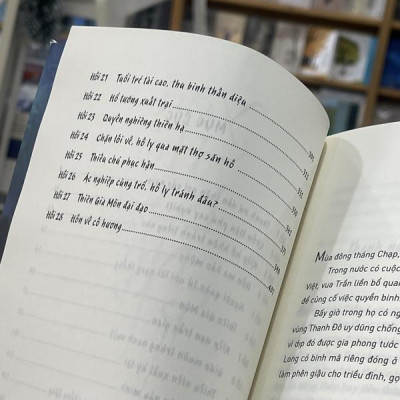 Hồi 21 Tuổi trẻ tài cao, thu binh thần diệu
Hồi 22 Hổ tướng xuất trại
Hồi 23 Quyền nghiêng thiên hạ
Hồi 24 Chặn lối về, hồ ly qua mặt thợ săn hổ
Hồi 25 Thiếu chủ phục hận
Hồi 26 Ác nghiệp cùng trổ, hồ ly tránh đâu?
Hồi 27 Thiền Gia Môn đại đạo
Hồi 28 Hồn về cố hương
Mùa đông tháng Chạp,
Trong nước có cuộc
Việt, vua Trần liền bổ quan
để củng cố việc quyền binh.
Bấy giờ trong họ có ng
vùng Thanh Đô uy dũng chống
vì dẹp đó được gia phong tước
Long có binh mã riêng đóng ở
làm phên giậu cho triều đình, gọ